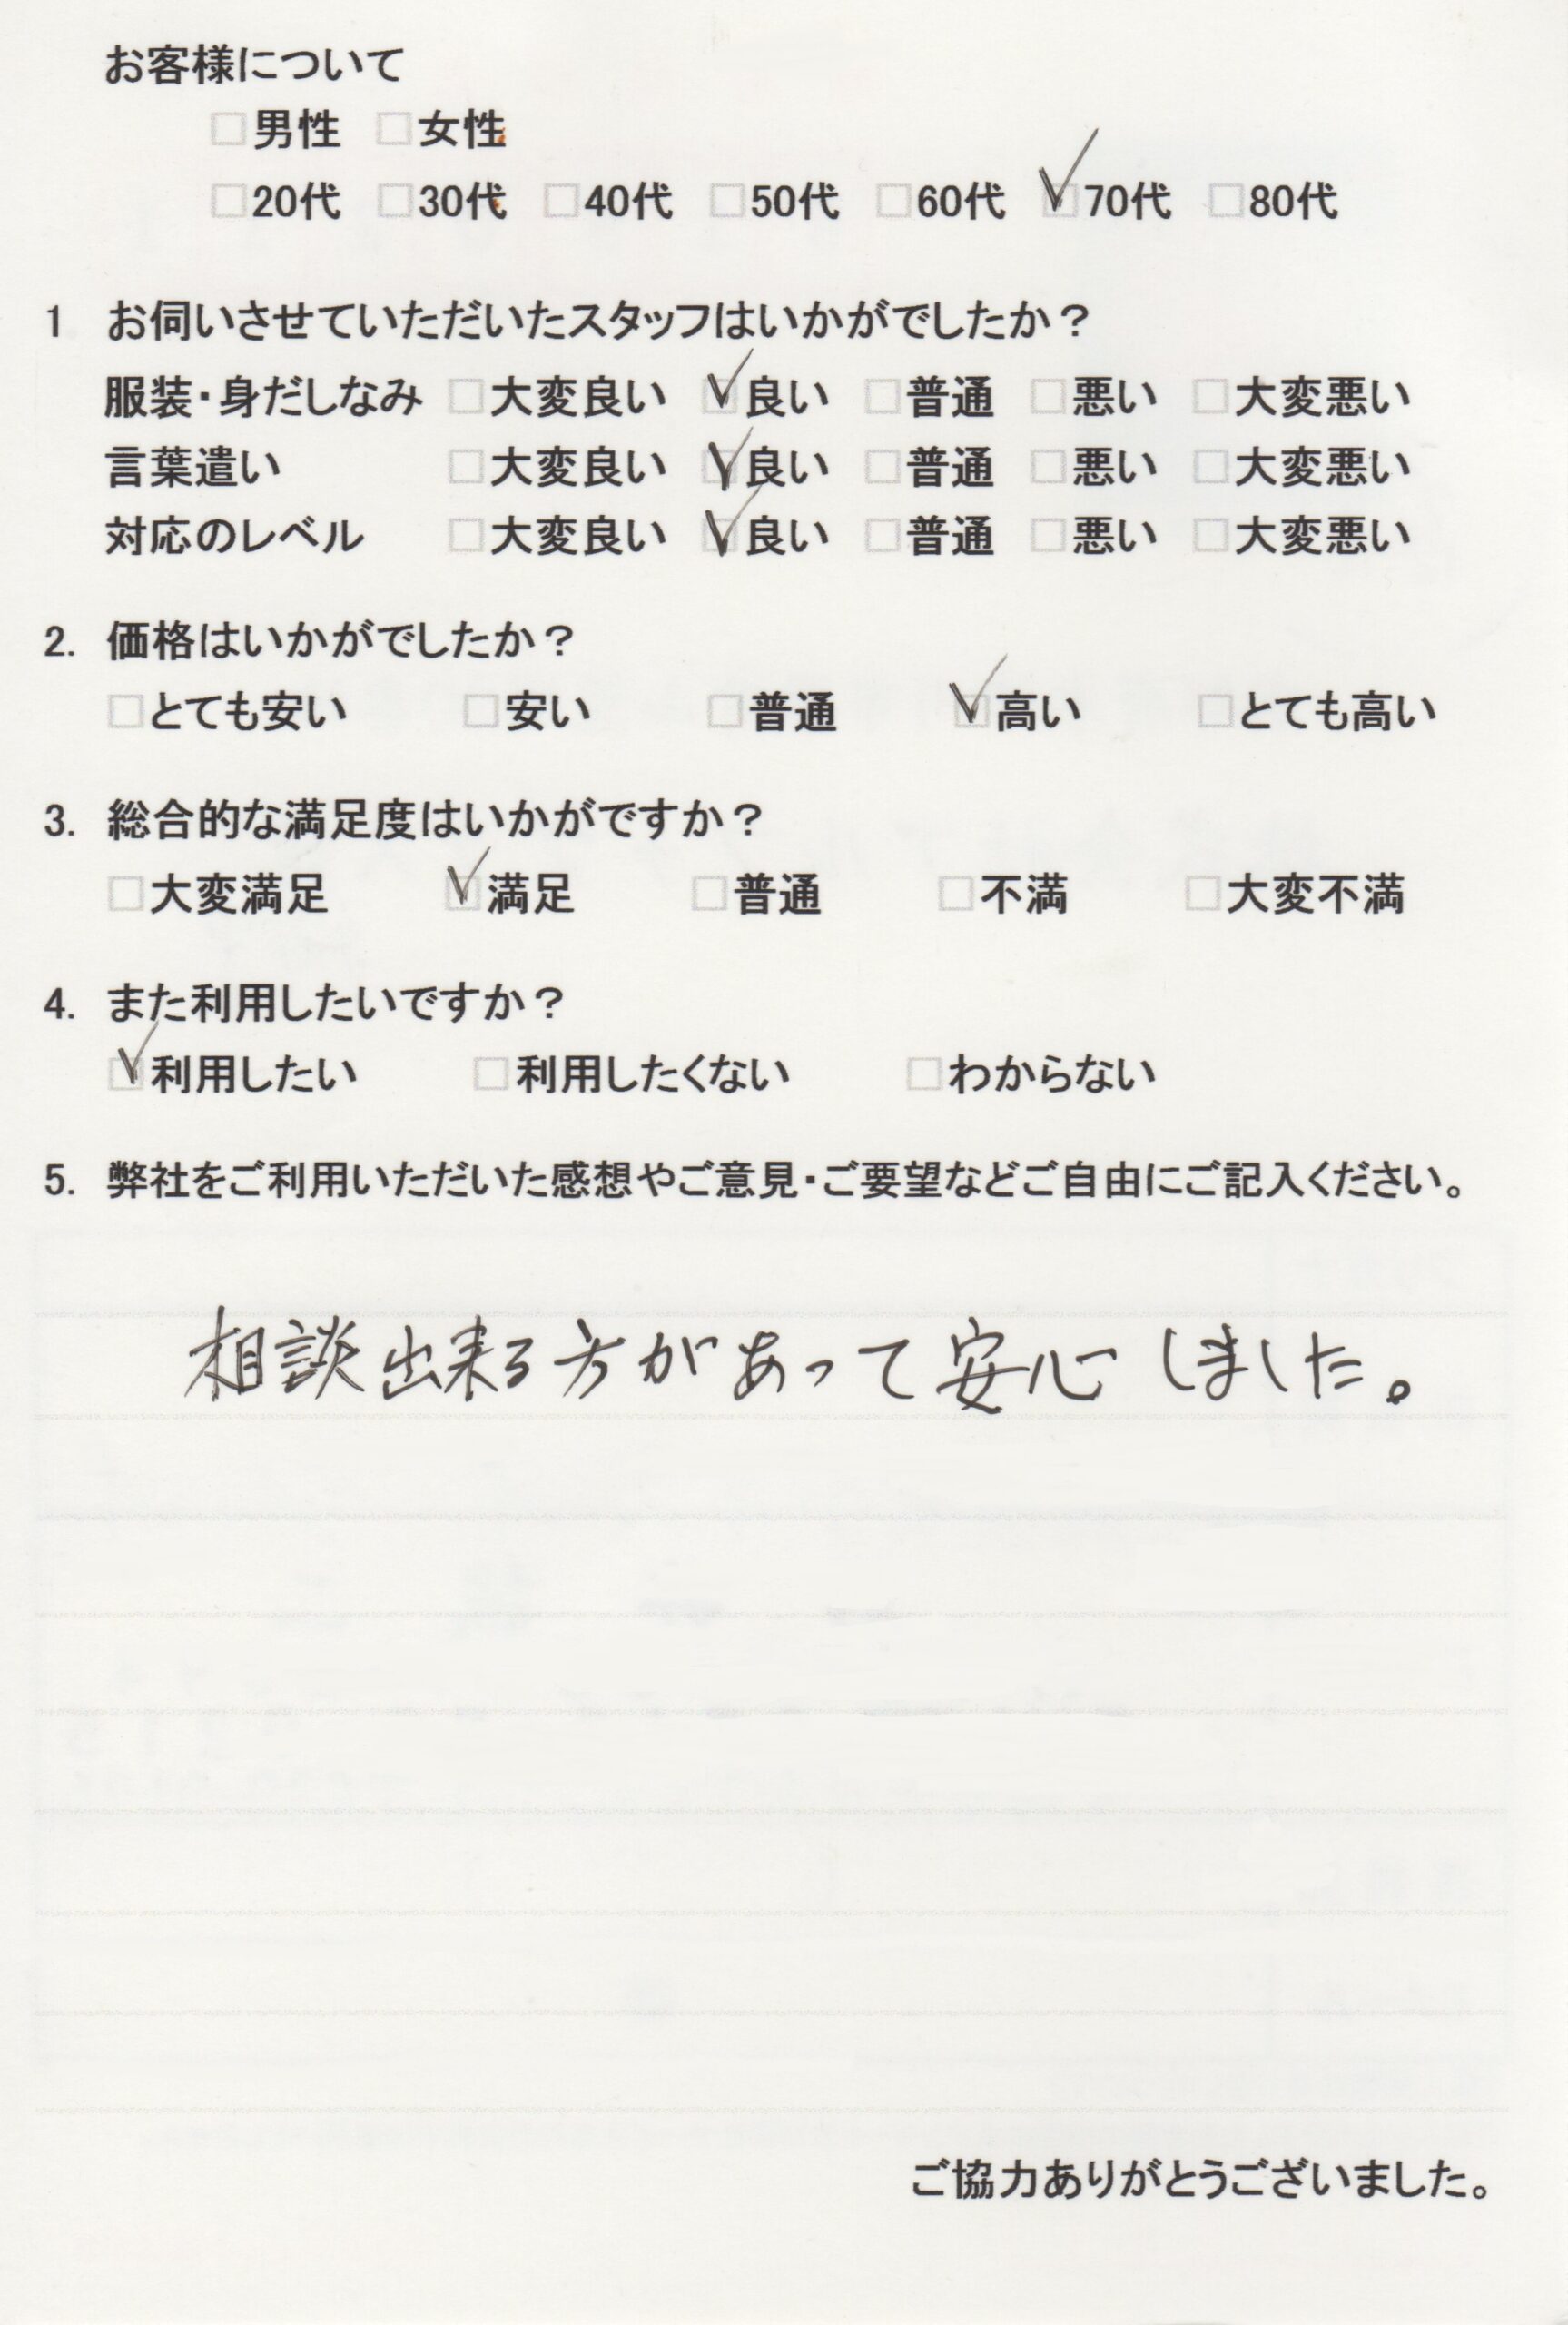 お客様について
□男性 □女性
□20代 □30代 □40代 □50代 □60代 ☑70代 □80代
1 お伺いさせていただいたスタッフはいかがでしたか？
服装・身だしなみ □大変良い ☑良い □普通 □悪い □大変悪い
言葉遣い □大変良い ☑良い □普通 □悪い □大変悪い
対応のレベル □大変良い ☑良い □普通 □悪い □大変悪い
2. 価格はいかがでしたか？
□とても安い □安い □普通 ☑高い □とても高い
3. 総合的な満足度はいかがですか？
□大変満足 ☑満足 □普通 □不満 □大変不満
4. また利用したいですか？
☑利用したい □利用したくない □わからない
5. 弊社をご利用いただいた感想やご意見・ご要望などご自由にご記入ください。
相談出来る方があって安心しました。
ご協力ありがとうございました。